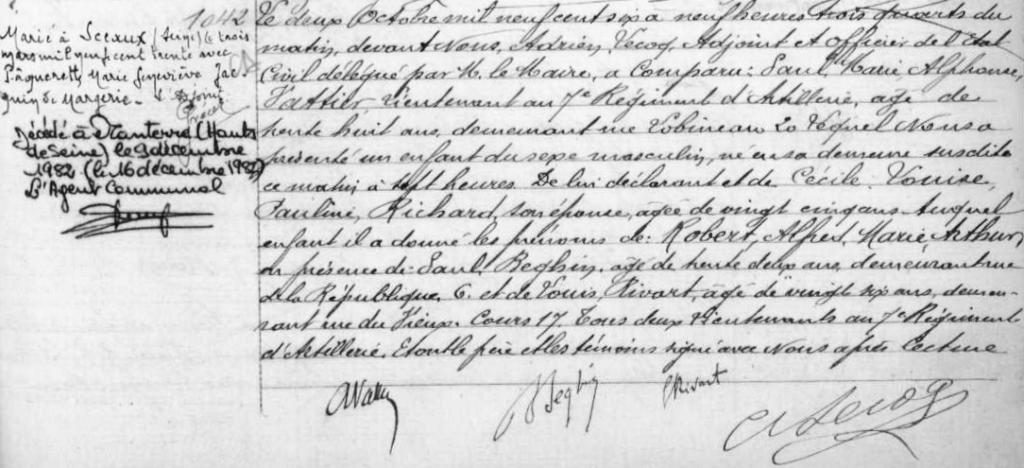 1042
Marié à Sceaux (Seine) le trois
mars mil neuf cent trente avec
Pâquerette Marie Geneviève Jac-
quin de Margerie. L'Adjoint
Décédé à Nanterre (Hauts
de Seine) le 9 décembre
1982 (le 16 décembre 1982)
L'Agent Communal
Le deux Octobre mil neuf cent six à neuf heures trois quarts du
matin, devant Nous, Adrien Lecoq, Adjoint et officier de l'Etat
Civil délégué par M. le Maire, a comparu: Paul, Marie, Alphonse,
Vattier Lieutenant au 7e Régiment d'Artillerie, âgé de
trente huit ans, demeurant rue Lobineau 20 Lequel Nous a
présenté un enfant du sexe masculin, né en sa demeure susdite
ce matin à sept heures. De lui déclarant et de Cécile, Louise,
Pauline, Richard, son épouse, âgée de vingt cinq ans. Auquel
enfant il a donné les prénoms de: Robert, Alfred, Marie, Arthur,
en présence de: Paul, Beghin, âgé de trente deux ans, demeurant rue
de la République, 6. et de Louis, Rivart, âgé de vingt six ans, demeu-
rant rue du Vieux Cours 17. Tous deux Lieutenants au 7e Régiment
d'Artillerie. Et ont le père et les témoins signé avec Nous après lecture
Beghin
Rivart
A Lecoq